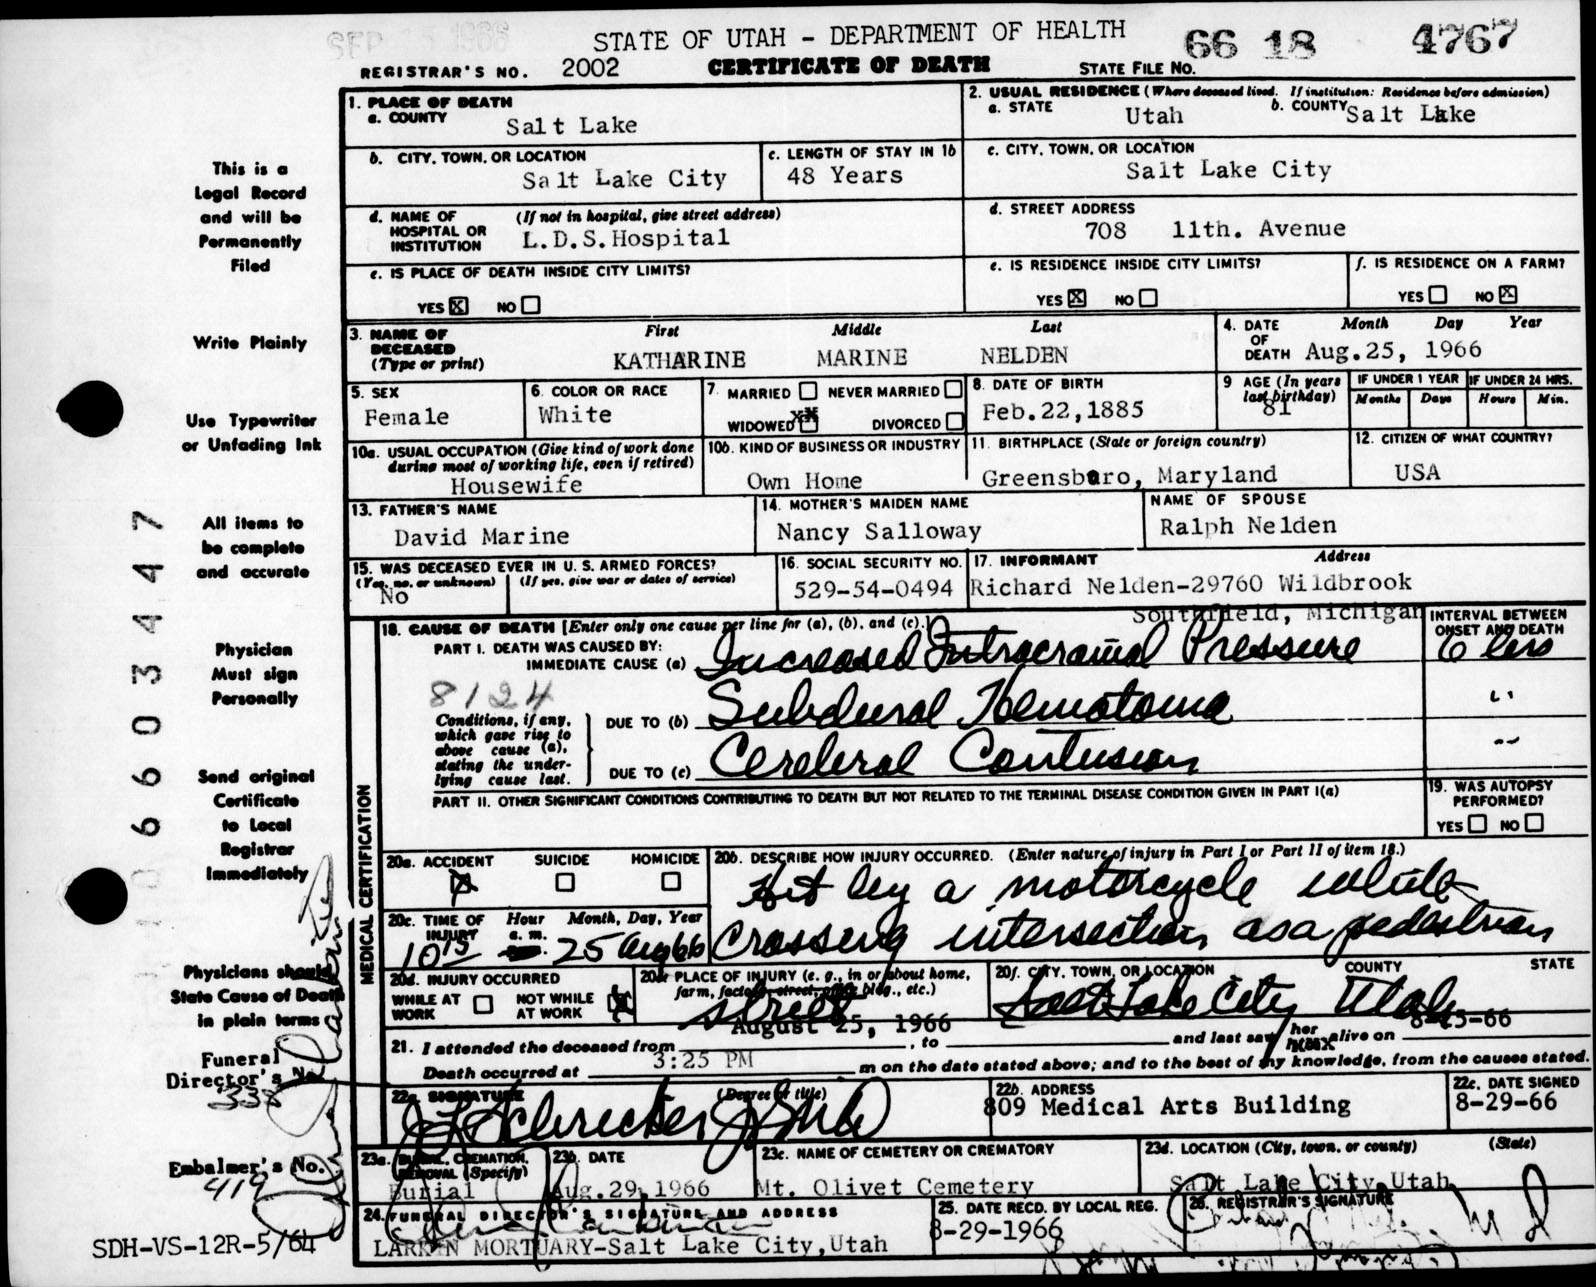 SEP 15 1966
STATE OF UTAH - DEPARTMENT OF HEALTH
66 18 4767
REGISTRAR'S NO. 2002 CERTIFICATE OF DEATH STATE FILE NO.
1. PLACE OF DEATH
a. COUNTY
Salt Lake
2. USUAL RESIDENCE (Where deceased lived. If institution: Residence before admission)
a. STATE Utah b. COUNTY Salt Lake
b. CITY, TOWN, OR LOCATION
Salt Lake City
c. LENGTH OF STAY IN 1b
48 Years
c. CITY, TOWN, OR LOCATION
Salt Lake City
d. NAME OF HOSPITAL OR INSTITUTION
(If not in hospital, give street address)
L.D.S.Hospital
d. STREET ADDRESS
708 11th. Avenue
e. IS PLACE OF DEATH INSIDE CITY LIMITS?
YES X NO
e. IS RESIDENCE INSIDE CITY LIMITS?
YES X NO
f. IS RESIDENCE ON A FARM?
YES NO X
3. NAME OF DECEASED (Type or print)
First Middle Last
KATHARINE MARINE NELDEN
4. DATE OF DEATH
Month Day Year
Aug.25, 1966
5. SEX
Female
6. COLOR OR RACE
White
7. MARRIED NEVER MARRIED
WIDOWED XX DIVORCED
8. DATE OF BIRTH
Feb.22,1885
9 AGE (In years last birthday)
81
IF UNDER 1 YEAR
Months Days
IF UNDER 24 HRS.
Hours Min.
10a. USUAL OCCUPATION (Give kind of work done during most of working life, even if retired)
Housewife
10b. KIND OF BUSINESS OR INDUSTRY
Own Home
11. BIRTHPLACE (State or foreign country)
Greensboro, Maryland
12. CITIZEN OF WHAT COUNTRY?
USA
13. FATHER'S NAME
David Marine
14. MOTHER'S MAIDEN NAME
Nancy Salloway
NAME OF SPOUSE
Ralph Nelden
15. WAS DECEASED EVER IN U. S. ARMED FORCES?
(Yes, no, or unknown) (If yes, give war or dates of service)
No
16. SOCIAL SECURITY NO.
529-54-0494
17. INFORMANT Address
Richard Nelden-29760 Wildbrook
Southfield, Michigan
MEDICAL CERTIFICATION
18. CAUSE OF DEATH [Enter only one cause per line for (a), (b), and (c).]
PART I. DEATH WAS CAUSED BY:
IMMEDIATE CAUSE (a) Increased Intracranial Pressure
8124
Conditions, if any, which gave rise to above cause (a), stating the underlying cause last.
DUE TO (b) Subdural Hematoma
DUE TO (c) Cerebral Contusion
INTERVAL BETWEEN ONSET AND DEATH
6 hrs
"
"
PART II. OTHER SIGNIFICANT CONDITIONS CONTRIBUTING TO DEATH BUT NOT RELATED TO THE TERMINAL DISEASE CONDITION GIVEN IN PART I(a)
19. WAS AUTOPSY PERFORMED?
YES NO
20a. ACCIDENT SUICIDE HOMICIDE
X
20b. DESCRIBE HOW INJURY OCCURRED. (Enter nature of injury in Part I or Part II of item 18.)
Hit by a motorcycle while
crossing intersection as a pedestrian
20c. TIME OF INJURY
Hour Month, Day, Year
a. m.
10 15 25 Aug 66
20d. INJURY OCCURRED
WHILE AT WORK NOT WHILE AT WORK X
20e. PLACE OF INJURY (e. g., in or about home, farm, factory, street, office bldg., etc.)
street
20f. CITY, TOWN, OR LOCATION COUNTY STATE
Salt Lake City Utah
August 25, 1966 8-25-66
21. I attended the deceased from , to and last saw her him alive on
Death occurred at 3:25 PM m on the date stated above; and to the best of my knowledge, from the causes stated.
22a. SIGNATURE (Degree or title)
22b. ADDRESS
809 Medical Arts Building
22c. DATE SIGNED
8-29-66
23a. BURIAL, CREMATION, REMOVAL (Specify)
Burial
23b. DATE
Aug.29,1966
23c. NAME OF CEMETERY OR CREMATORY
Mt. Olivet Cemetery
23d. LOCATION (City, town, or county) (State)
Salt Lake City,Utah
24. FUNERAL DIRECTOR'S SIGNATURE AND ADDRESS
LARKIN MORTUARY-Salt Lake City,Utah
25. DATE RECD. BY LOCAL REG.
8-29-1966
26. REGISTRAR'S SIGNATURE
This is a
Legal Record
and will be
Permanently
Filed
Write Plainly
Use Typewriter
or Unfading Ink
All items to
be complete
and accurate
Physician
Must sign
Personally
Send original
Certificate
to Local
Registrar
Immediately
Physicians should
State Cause of Death
in plain terms
Funeral
Director's No.
338
Embalmer's No.
419
SDH-VS-12R-5/64
6603447